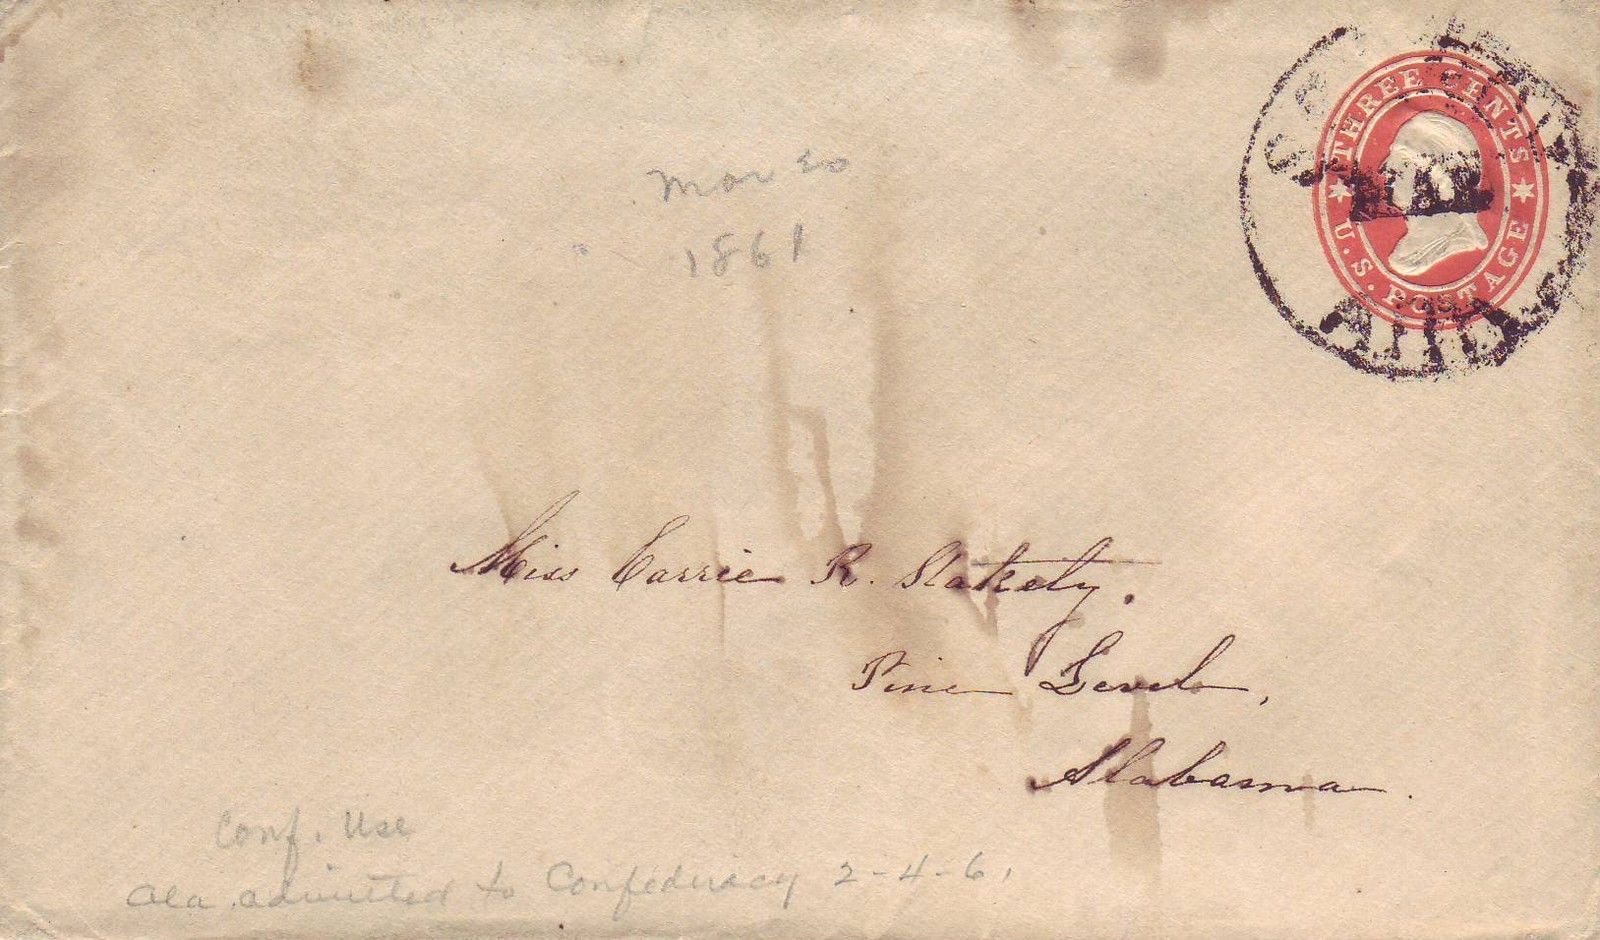 THREE CENTS
U.S. POSTAGE
MAR
Mar
1861
Miss Carrie R. Stakely.
Pine Level,
Alabama.
Conf. Use
Ala. admitted to Confederacy 2-4-61